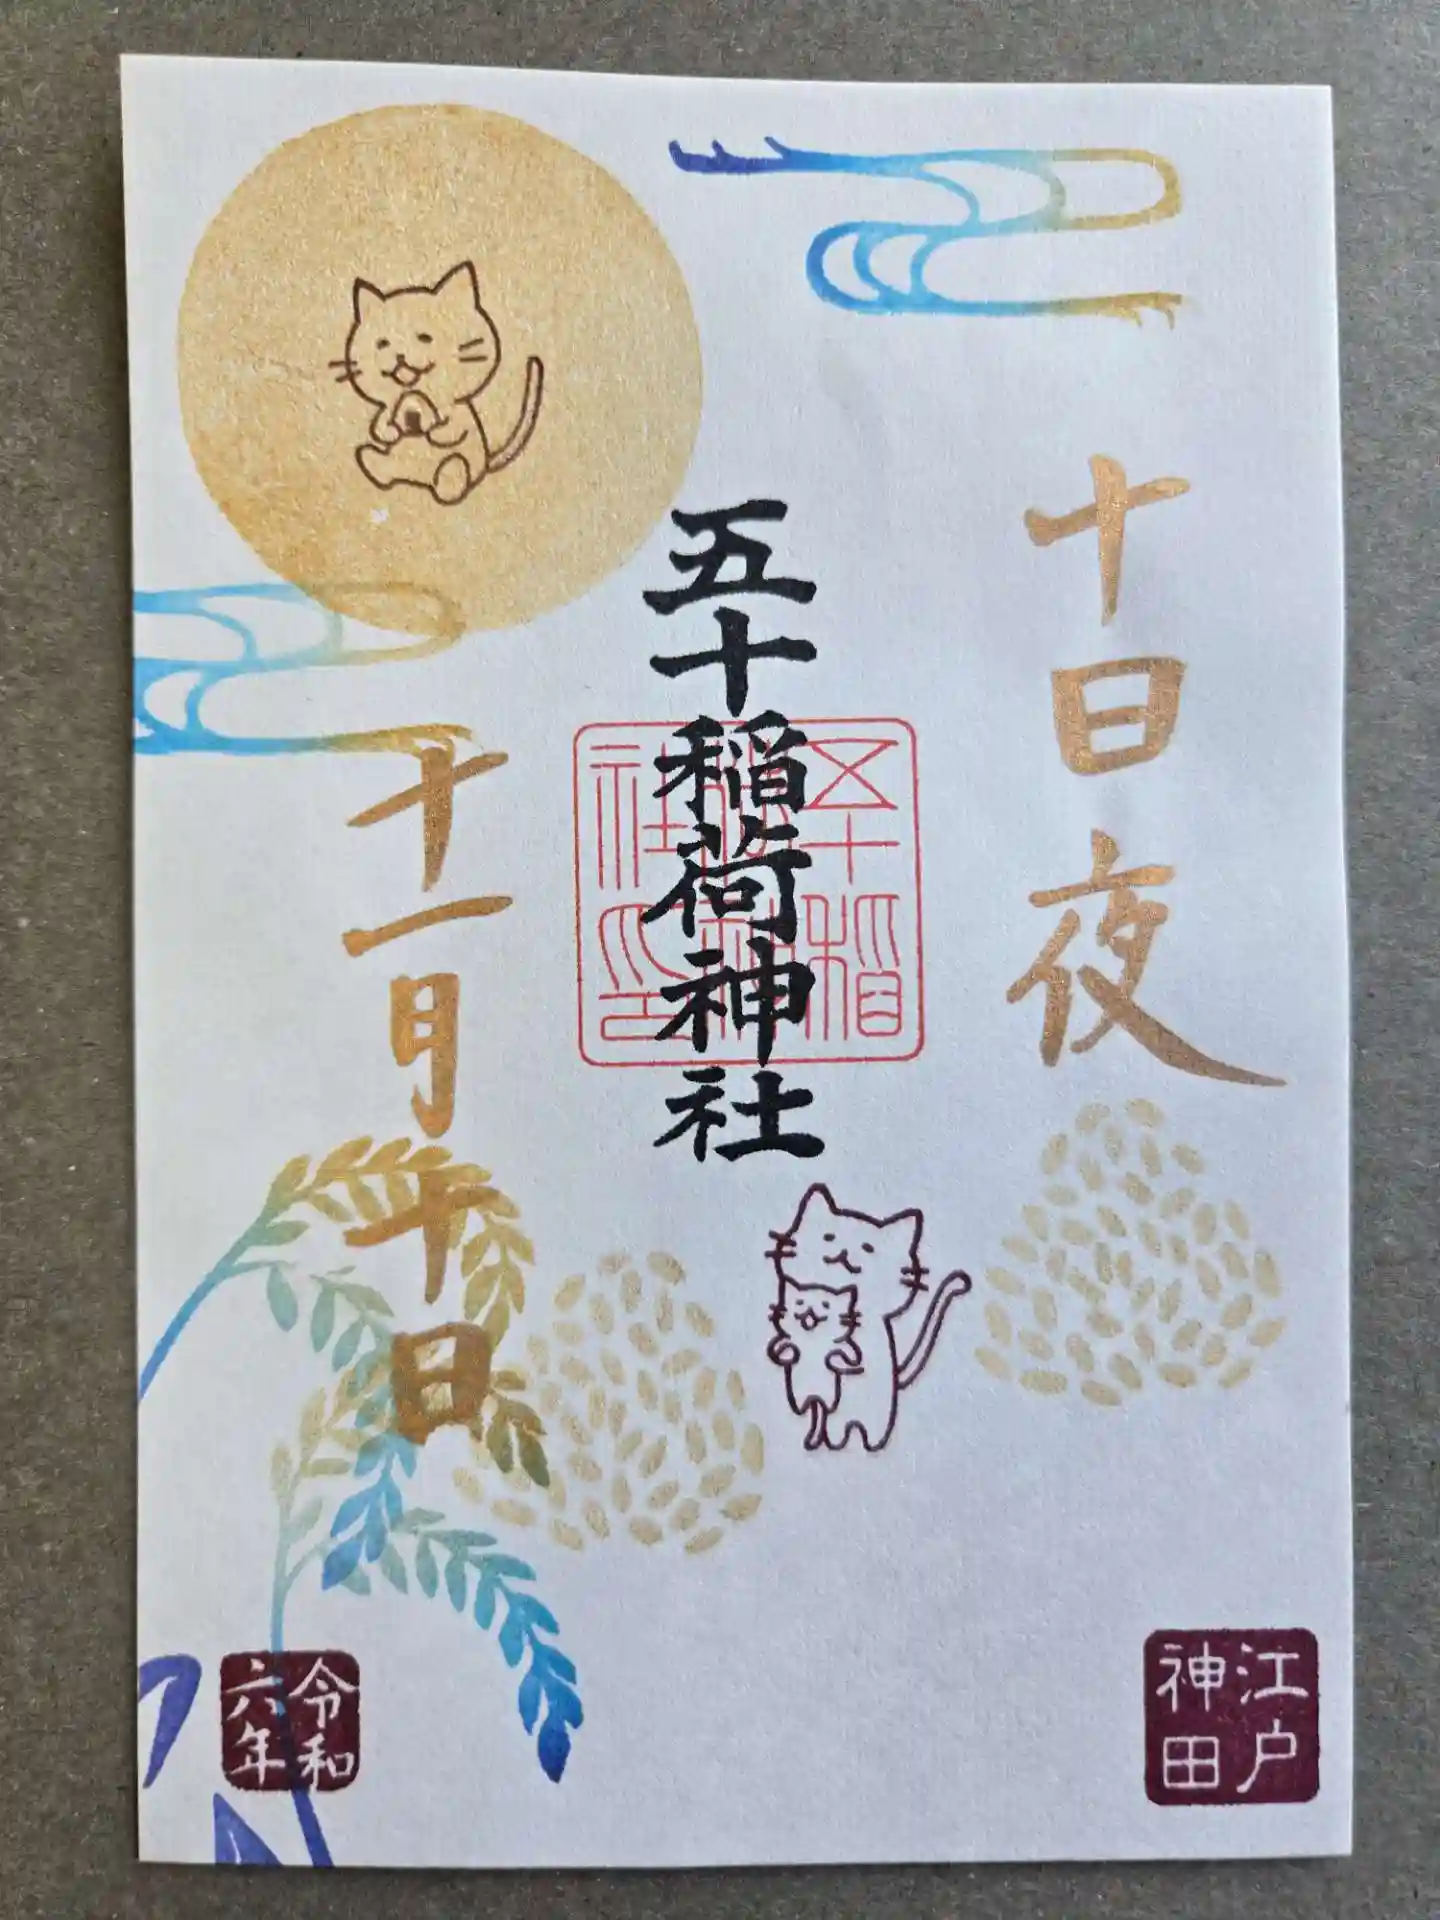 十日夜
五十稲荷神社
五十稲
社印
十一月十日
江戸
神田
令和
六年